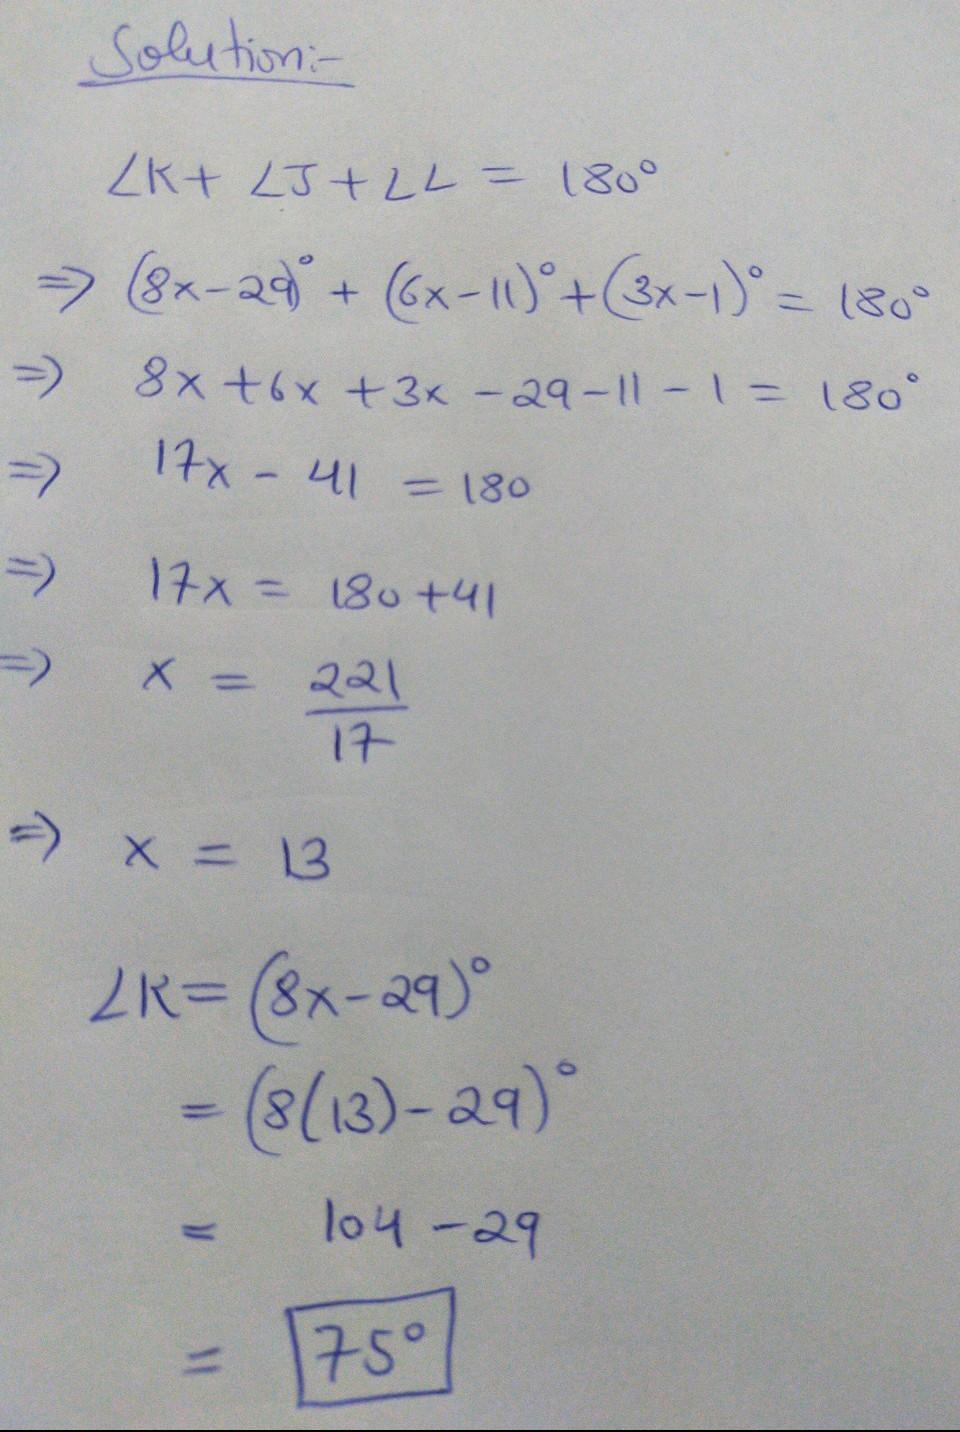 Solution:-
∠K + ∠J + ∠L = 180°
⇒ (8x-29)° + (6x-11)° + (3x-1)° = 180°
⇒ 8x + 6x + 3x - 29 - 11 - 1 = 180°
⇒ 17x - 41 = 180
⇒ 17x = 180 + 41
⇒ x = 221/17
⇒ x = 13
∠K = (8x-29)°
= (8(13) - 29)°
= 104 - 29
= 75°